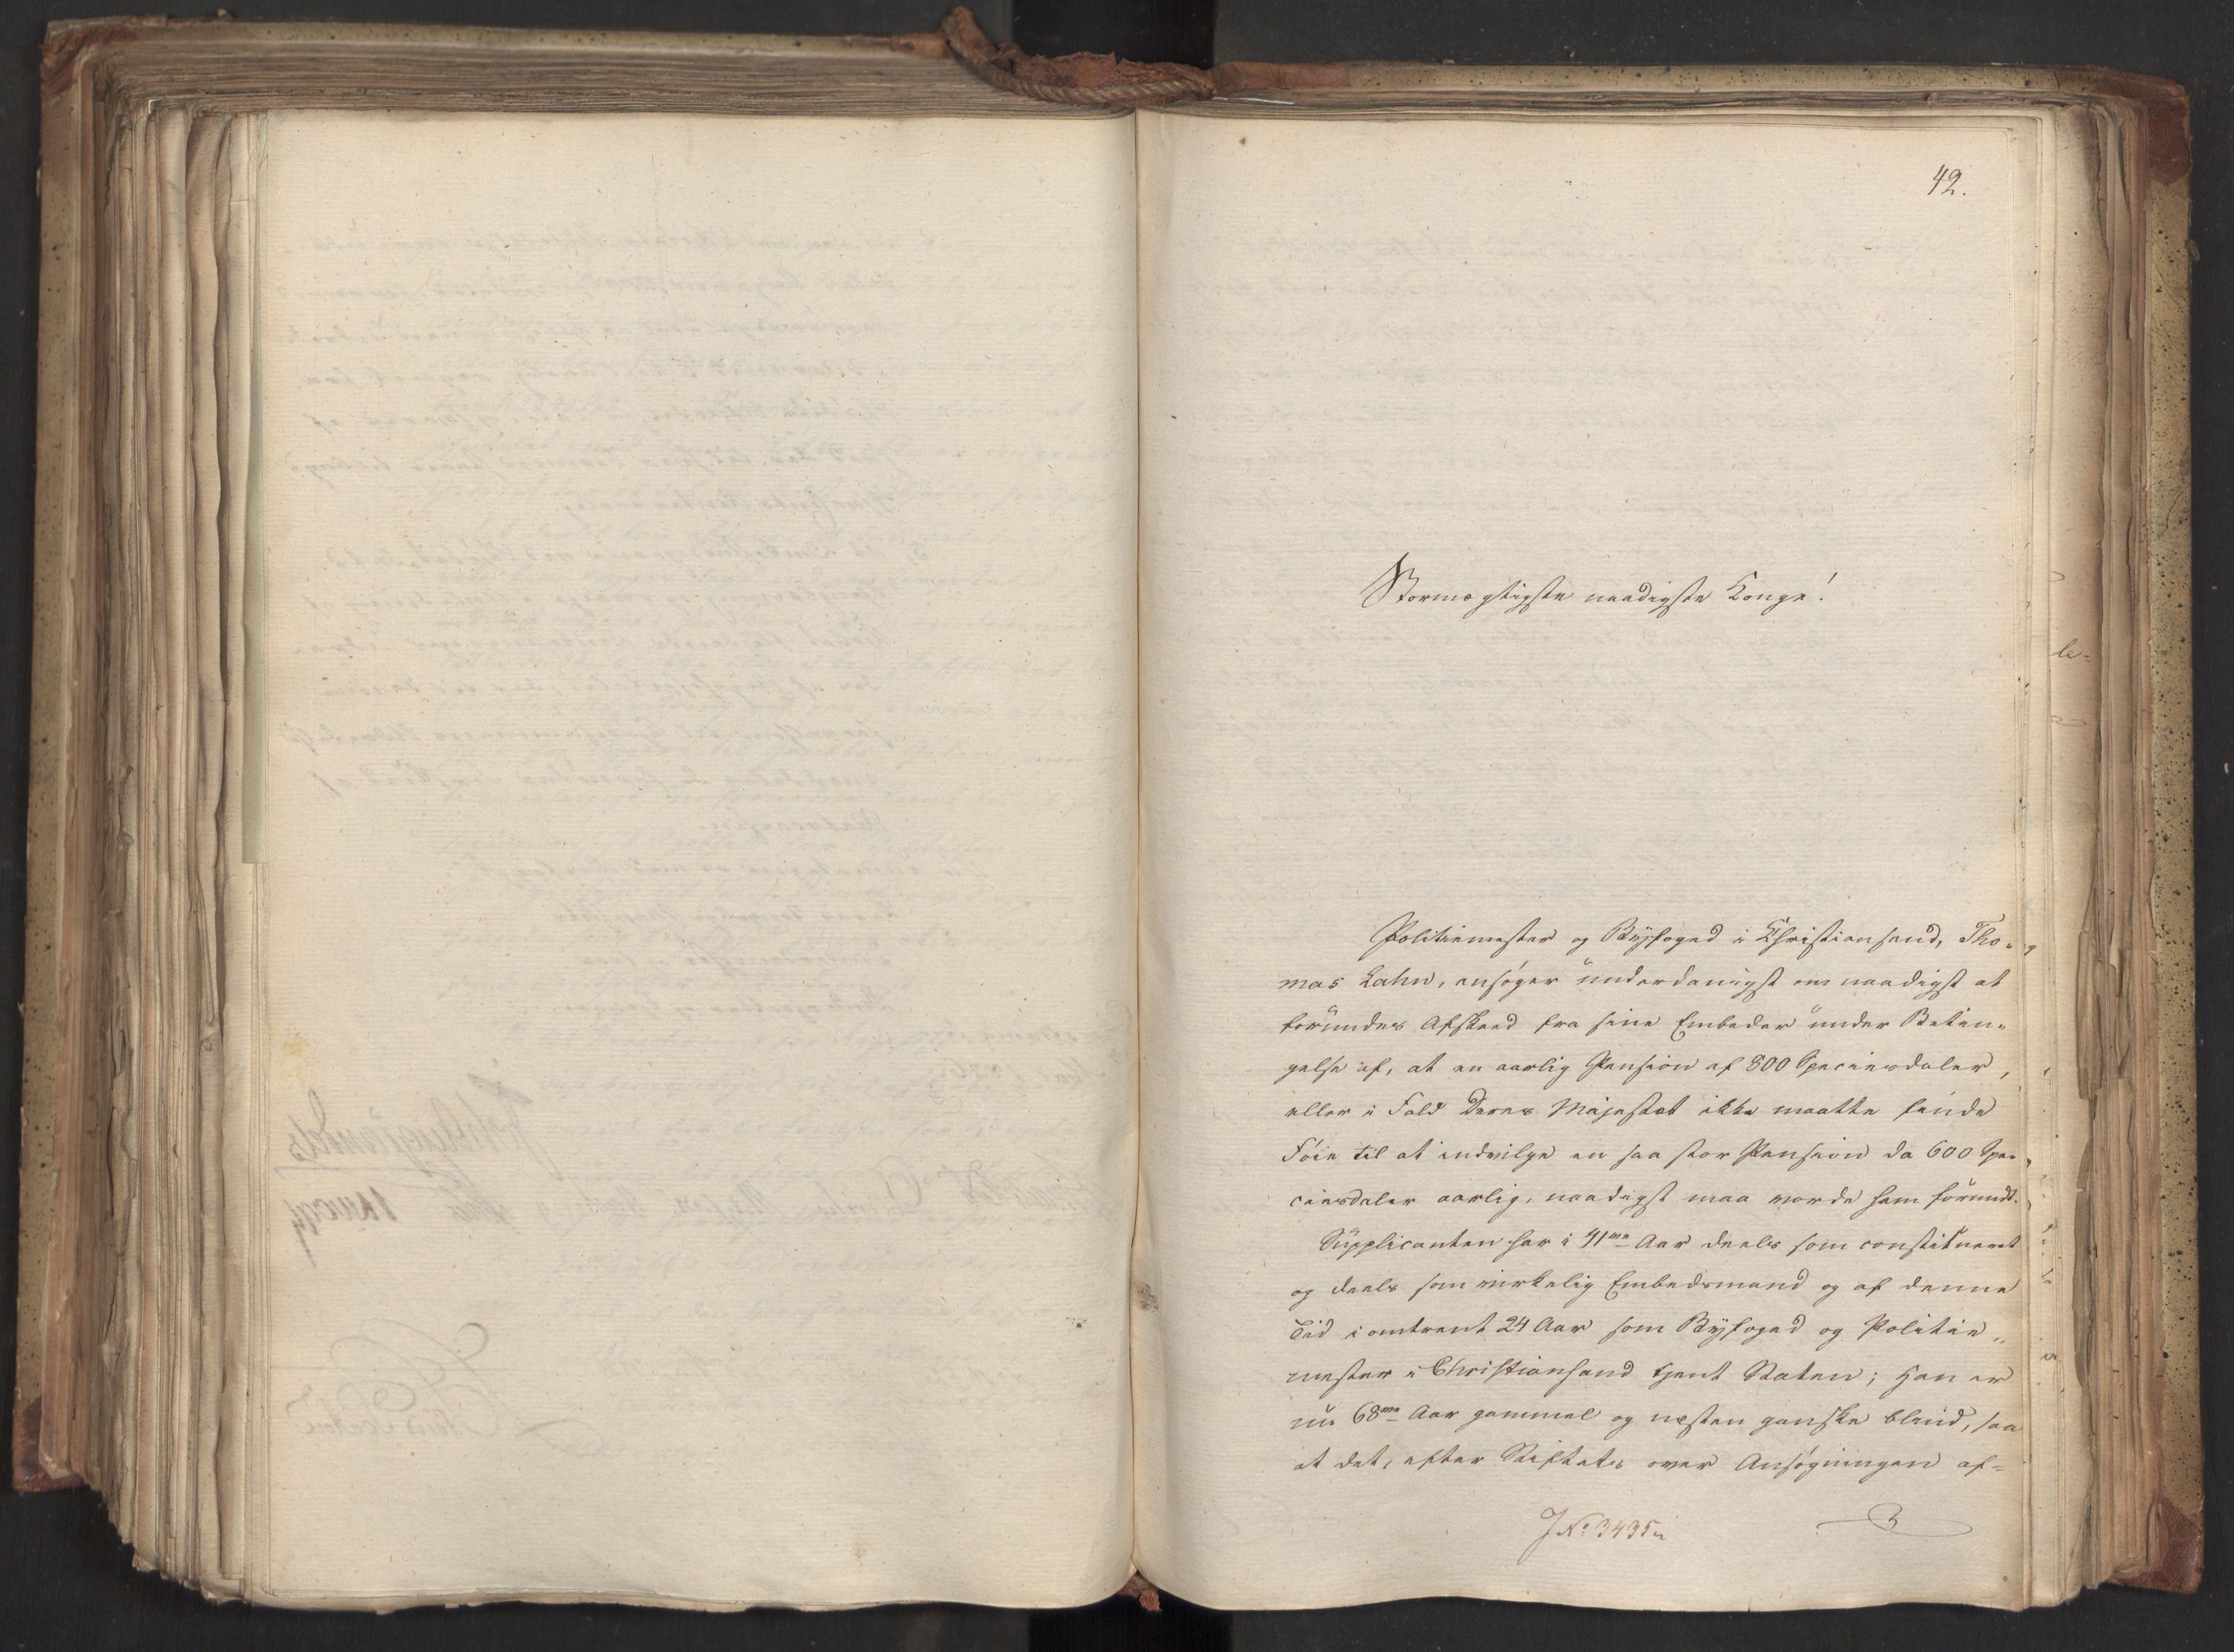 42.
Stormægtigste naadigste Konge!
Politiemester og Byfoged i Christiansand, Tho„
mas Lahn, ansøger underdanigst om naadigst at
forundes Afskeed fra sine Embeder under Betin„
gelse af, at en aarlig Pension af 800 Speciesdaler,
eller i Fald Deres Majestæt ikke maatte finde
Føie til at indvilge en saa stor Pension da 600 Spe„
ciesdaler aarlig, naadigst maa vorde ham forundt.
Supplicanten har i 41me Aar deels som constitueret
og deels som virkelig Embedsmand og af denne
Tid i omtrent 24 Aar som Byfoged og Politie„
mester i Christiansand tjent Staten; han er
nu 68me Aar gammel og næsten ganske blind, saa
at det, efter Stiftets over Ansøgningen af=
J No 3435